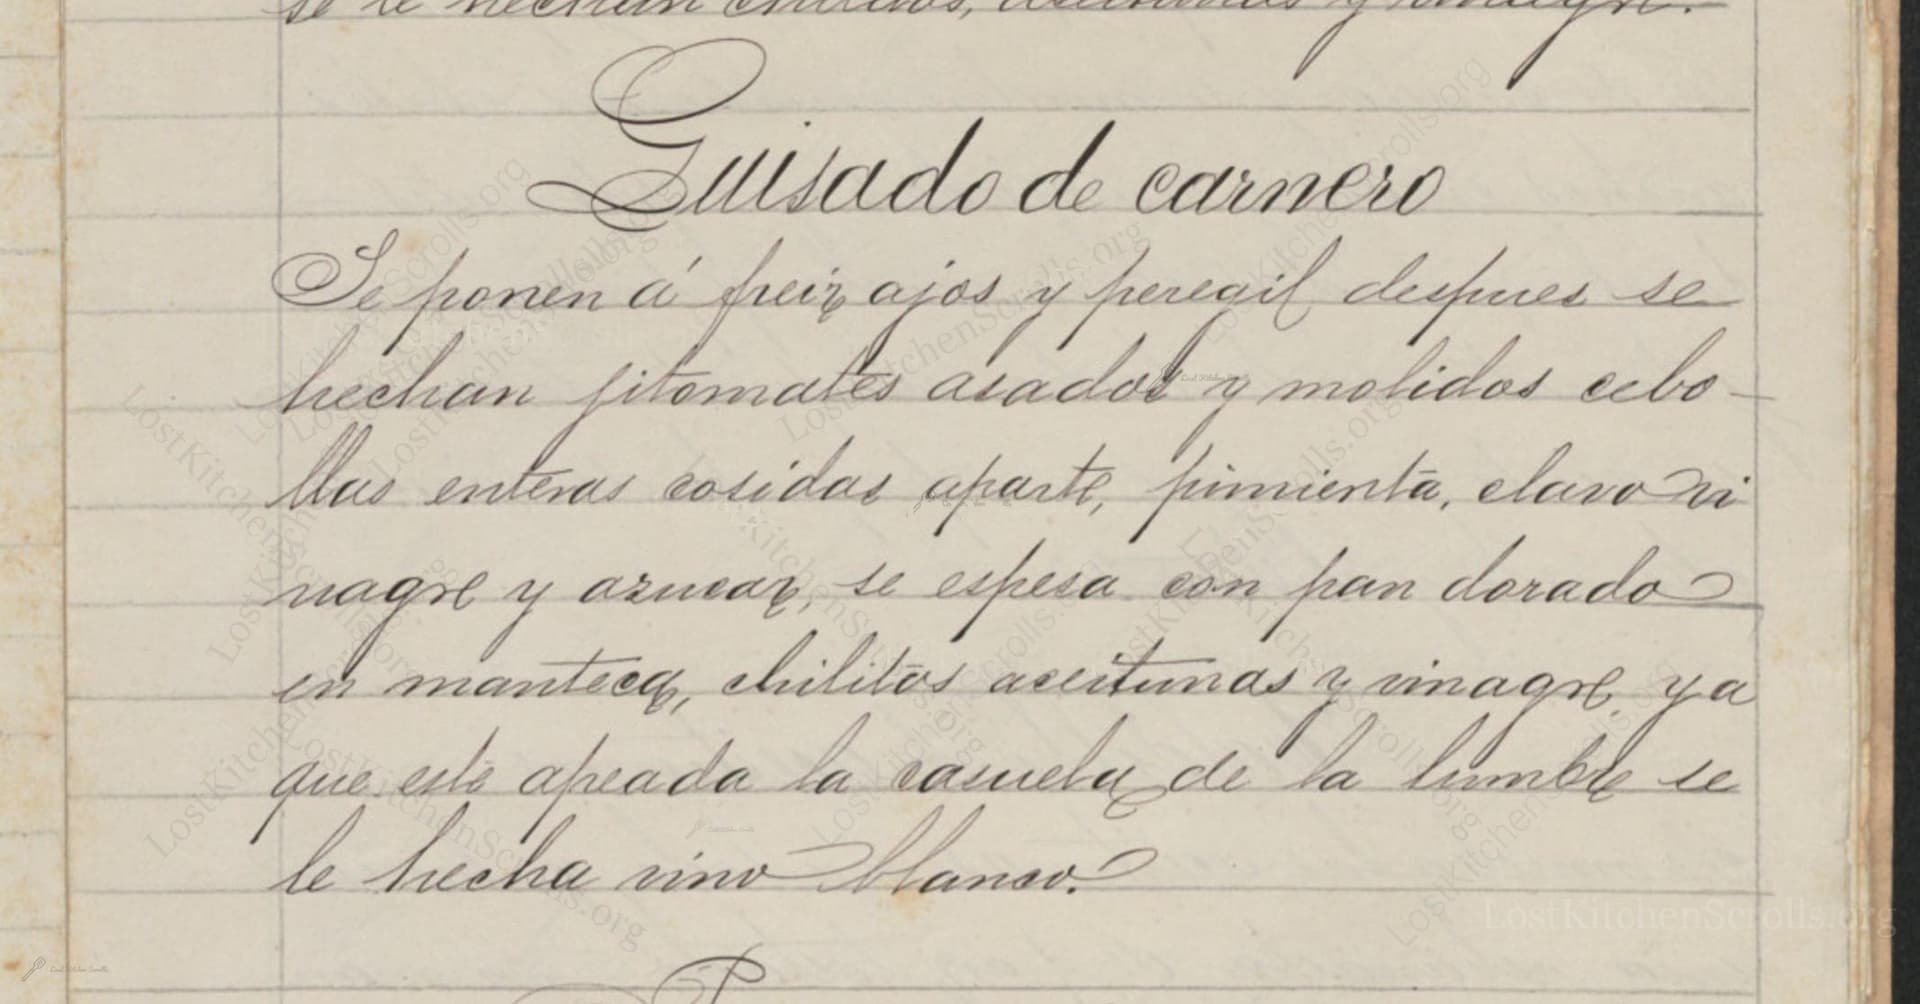 se le hechan chilitos, aceitunas y vinagre.
Guisado de carnero
Se ponen á freir ajos y peregil despues se
hechan jitomates asados y molidos cebo-
llas enteras cosidas aparte, pimienta, clavo vi
nagre y azucar, se espesa con pan dorado
en manteca, chilitos aceitunas y vinagre, ya
que esté apeada la casuela de la lumbre se
le hecha vino blanco.
LostKitchenScrolls.org